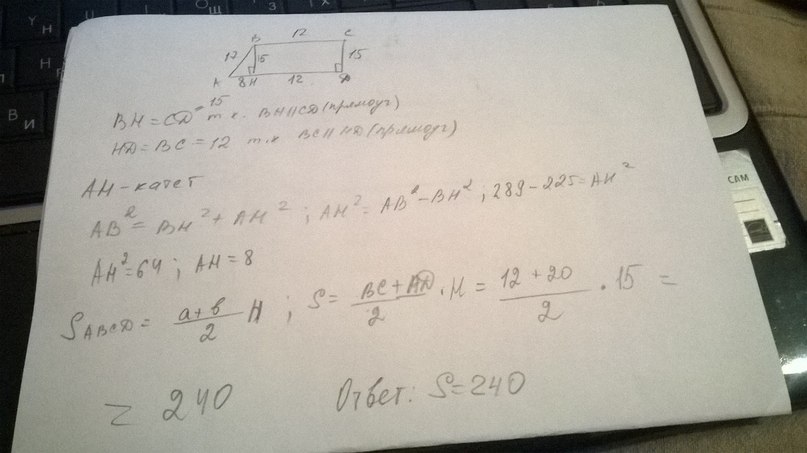 B 12 C
17 15 15
A 8 H 12 D
BH = CD = 15 т.к. BH||CD (прямоуг)
HD = BC = 12 т.к BC||HD (прямоуг)
AH - катет
AB² = BH² + AH² ; AH² = AB² - BH² ; 289 - 225 = AH²
AH² = 64 ; AH = 8
S ABCD = a+b/2 H ; S = BC+AD/2 · H = 12+20/2 · 15 =
= 240 Ответ: S = 240
САМ